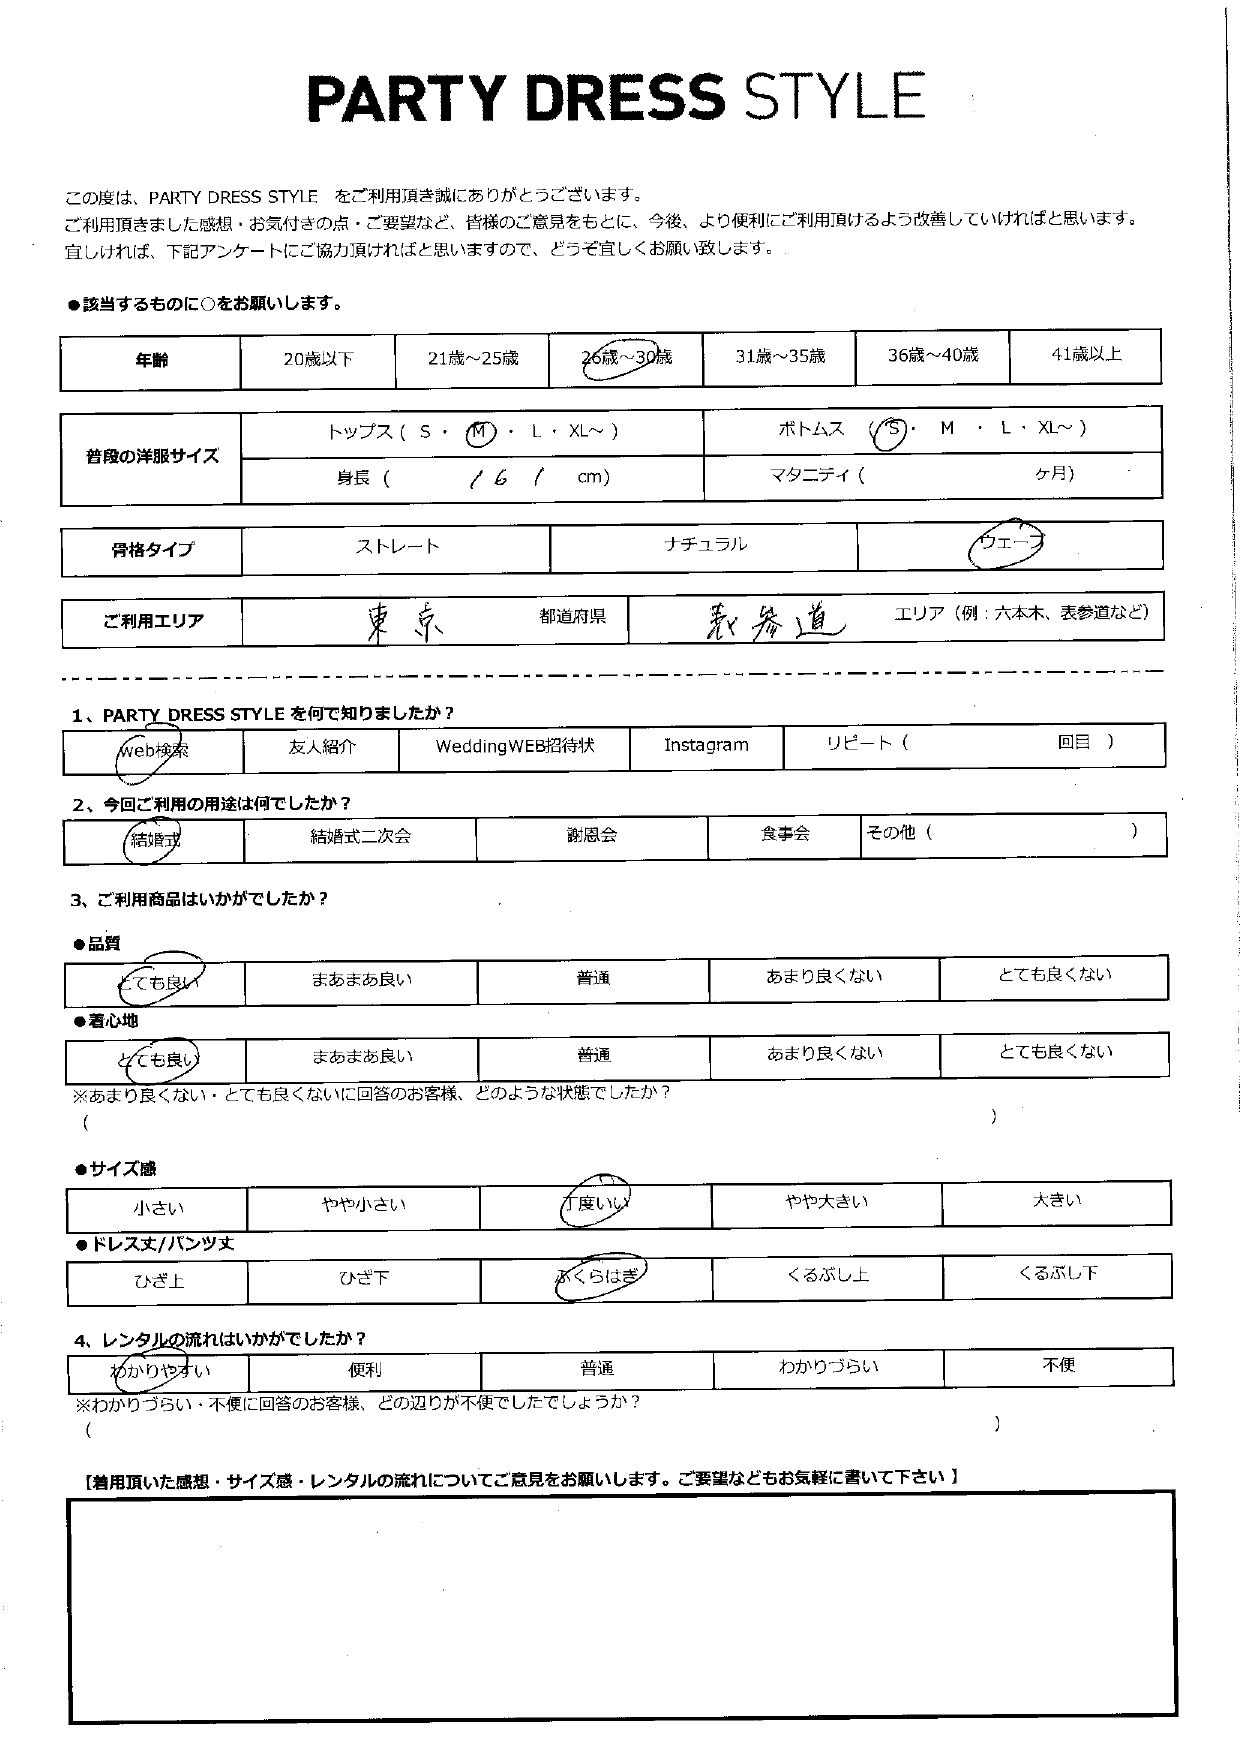 PARTY DRESS STYLE
この度は、PARTY DRESS STYLE をご利用頂き誠にありがとうございます。
ご利用頂きました感想・お気付きの点・ご要望など、皆様のご意見をもとに、今後、より便利にご利用頂けるよう改善していければと思います。
宜しければ、下記アンケートにご協力頂ければと思いますので、どうぞ宜しくお願い致します。
●該当するものに○をお願いします。
年齢 20歳以下 21歳～25歳 26歳～30歳 31歳～35歳 36歳～40歳 41歳以上
普段の洋服サイズ
トップス ( S ・ M ・ L ・ XL～ ) ボトムス ( S ・ M ・ L ・ XL～ )
身長 ( 161 cm) マタニティ ( ヶ月)
骨格タイプ ストレート ナチュラル ウェーブ
ご利用エリア 東京 都道府県 表参道 エリア（例：六本木、表参道など）
1、PARTY DRESS STYLE を何で知りましたか？
web検索 友人紹介 WeddingWEB招待状 Instagram リピート ( 回目 )
2、今回ご利用の用途は何でしたか？
結婚式 結婚式二次会 謝恩会 食事会 その他 ( )
3、ご利用商品はいかがでしたか？
●品質
とても良い まあまあ良い 普通 あまり良くない とても良くない
●着心地
とても良い まあまあ良い 普通 あまり良くない とても良くない
※あまり良くない・とても良くないに回答のお客様、どのような状態でしたか？
( )
●サイズ感
小さい やや小さい 丁度いい やや大きい 大きい
●ドレス丈/パンツ丈
ひざ上 ひざ下 ふくらはぎ くるぶし上 くるぶし下
4、レンタルの流れはいかがでしたか？
わかりやすい 便利 普通 わかりづらい 不便
※わかりづらい・不便に回答のお客様、どの辺りが不便でしたでしょうか？
( )
【着用頂いた感想・サイズ感・レンタルの流れについてご意見をお願いします。ご要望などもお気軽に書いて下さい 】